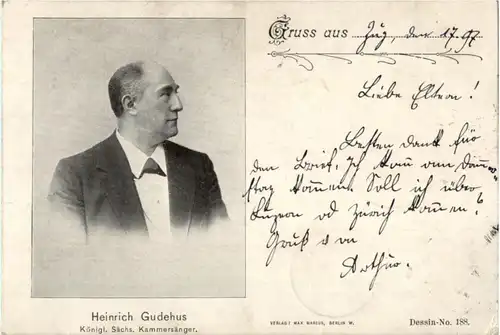 Gruss aus Zug, den 17. 97
Liebe Eltern!
Besten Dank für
den Brief. Ich kann am Donners-
tag kommen. Soll ich über
Luzern od Zürich kommen?
Gruß von
Arthur.
Heinrich Gudehus
Königl. Sächs. Kammersänger.
VERLAG: MAX MARCUS, BERLIN W.
Dessin-No. 188.